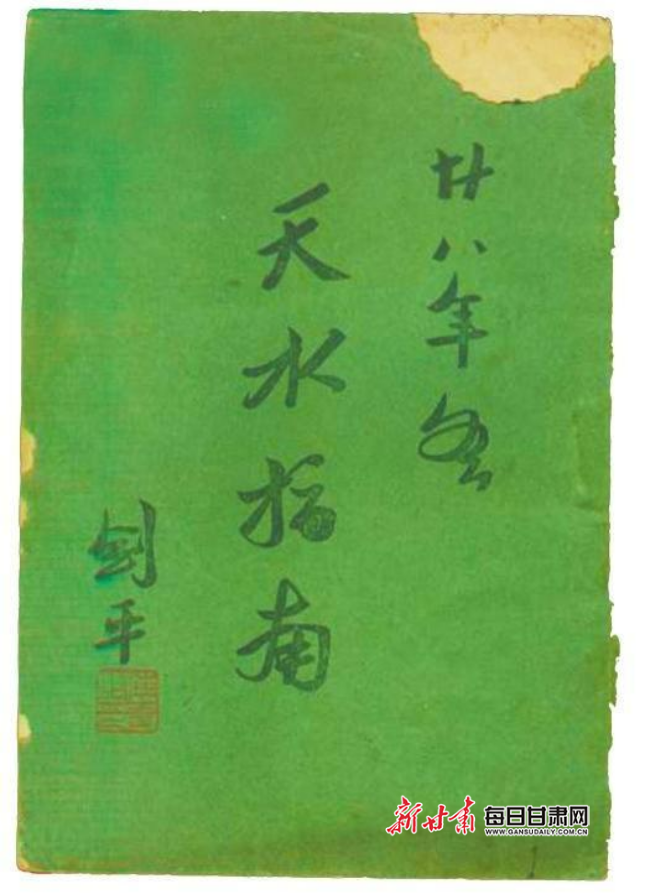 廿八年冬
天水指南
剑平
新甘肃
每日甘肃网
WWW.GANSUDAILY.COM.CN